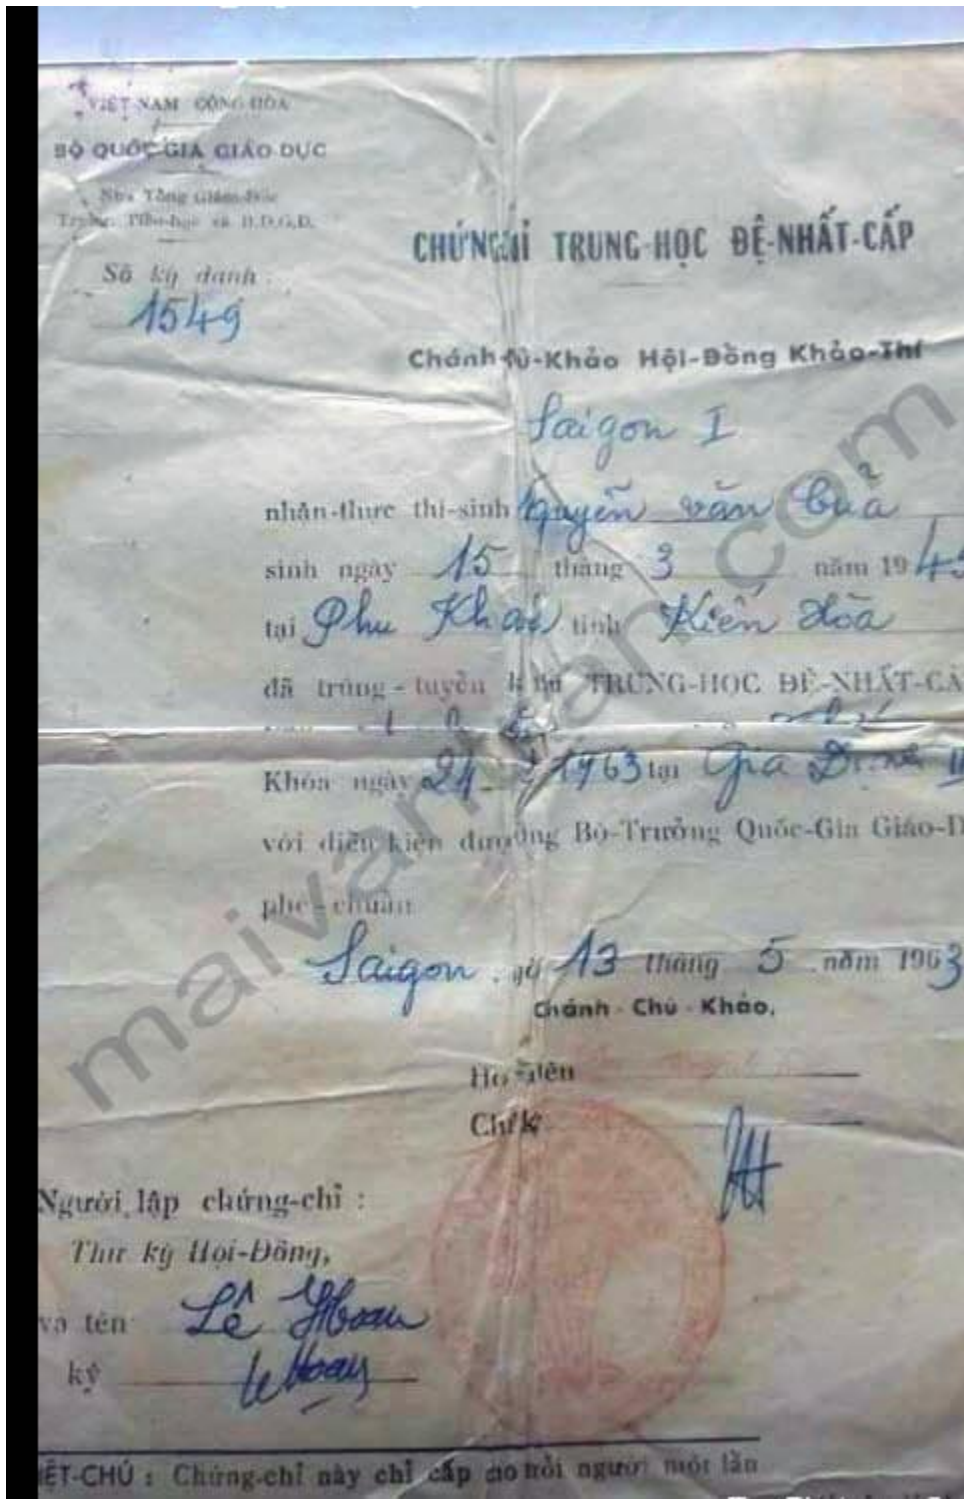 VIỆT NAM CỘNG HÒA
BỘ QUỐC-GIA GIÁO-DỤC
Nha Tổng Giám-Đốc
Trung, Tiểu-học và B.D.G.D.
Số ký danh
1549
CHỨNG CHỈ TRUNG-HỌC ĐỆ-NHẤT-CẤP
Chánh Chủ-Khảo Hội-Đồng Khảo-Thí
Saigon I
nhận-thực thí-sinh Nguyễn văn Của
sinh ngày 15 tháng 3 năm 19
tại Phu tỉnh Kiến Hòa
đã trúng-tuyển kỳ thi TRUNG-HỌC ĐỆ-NHẤT-CẤ
Khóa ngày 24 1963 tại Gia Định II
với điều kiện được ông Bộ-Trưởng Quốc-Gia Giáo-D
phê-chuẩn
Saigon, 13 tháng 5 năm 1963
Chánh-Chủ-Khảo,
Họ tên
Chữ ký
Người lập chứng-chỉ :
Thư ký Hội-Đồng,
và tên Lê Hoan
ký
IỆT-CHÚ : Chứng-chỉ này chỉ cấp cho mỗi người một lần
maivanhoan.com